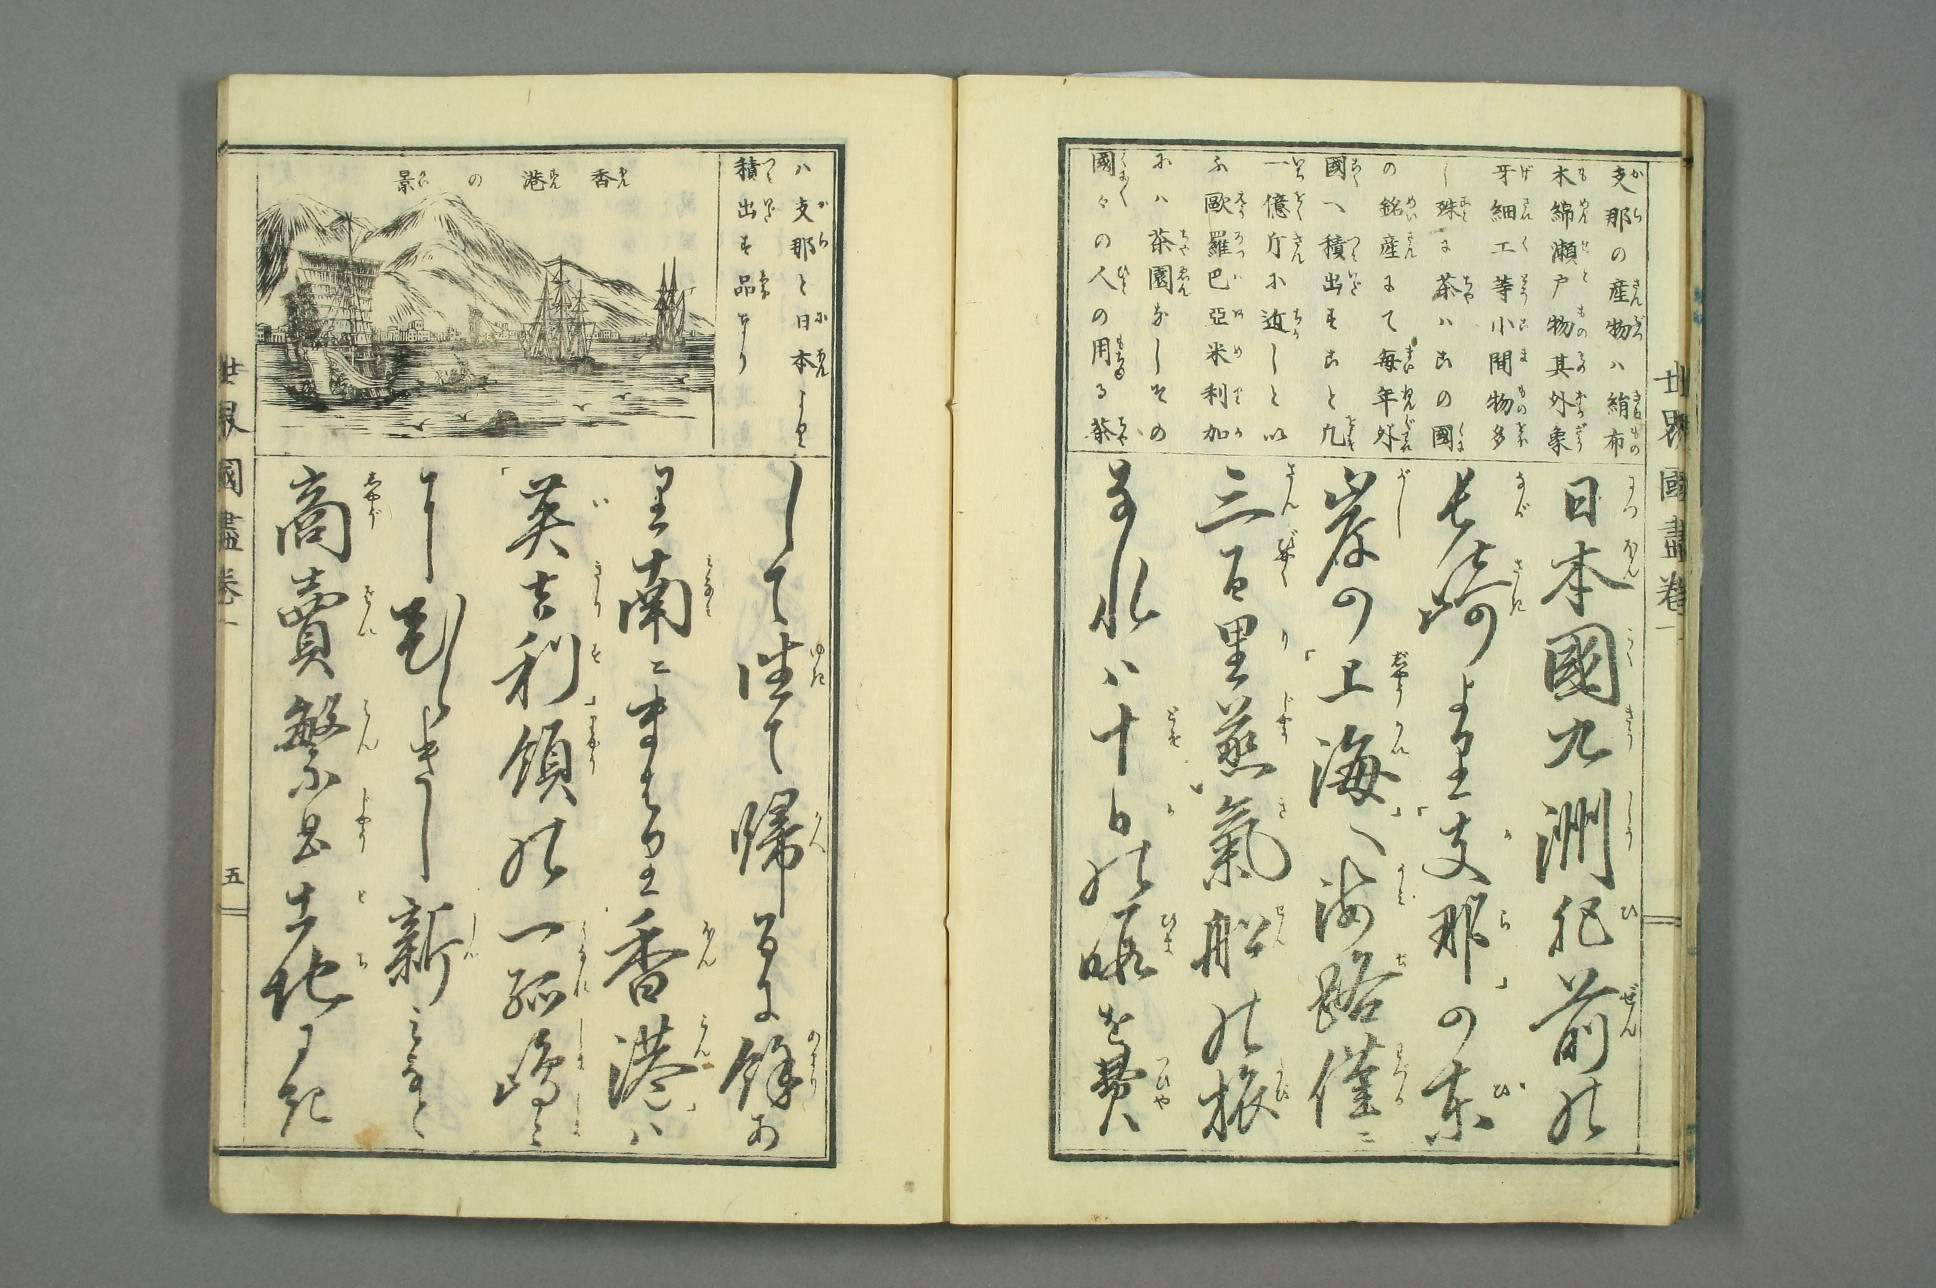 世界國盡卷一
支那の産物ハ絹布
木綿瀬戸物其外象
牙細工等小間物多
し殊に茶ハこの國
の銘産にて毎年外
國へ積出すこと凡
一億斤に近しと以
ふ歐羅巴亞米利加
にハ茶園なしその
國々の人の用る茶
日本國九洲肥前の
長崎より「支那」の東
岸の「上海」へ海路僅ニ
三百里蒸氣船の旅
なれハ十日の暇を費
ハ支那と日本より
積出す品なり
香港の景
して往て帰るに餘あ
り南ニ香港ハ
「英吉利」領の一孤嶋ニ
新みなと
商賣繁昌土地にき
世界國盡卷一
五